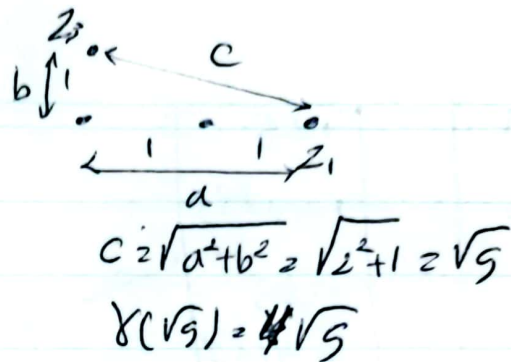 Z₃
b 1 c
1 1 Z₁
a
c = √(a²+b²) = √(2²+1) = √5
γ(√5) = 4√5